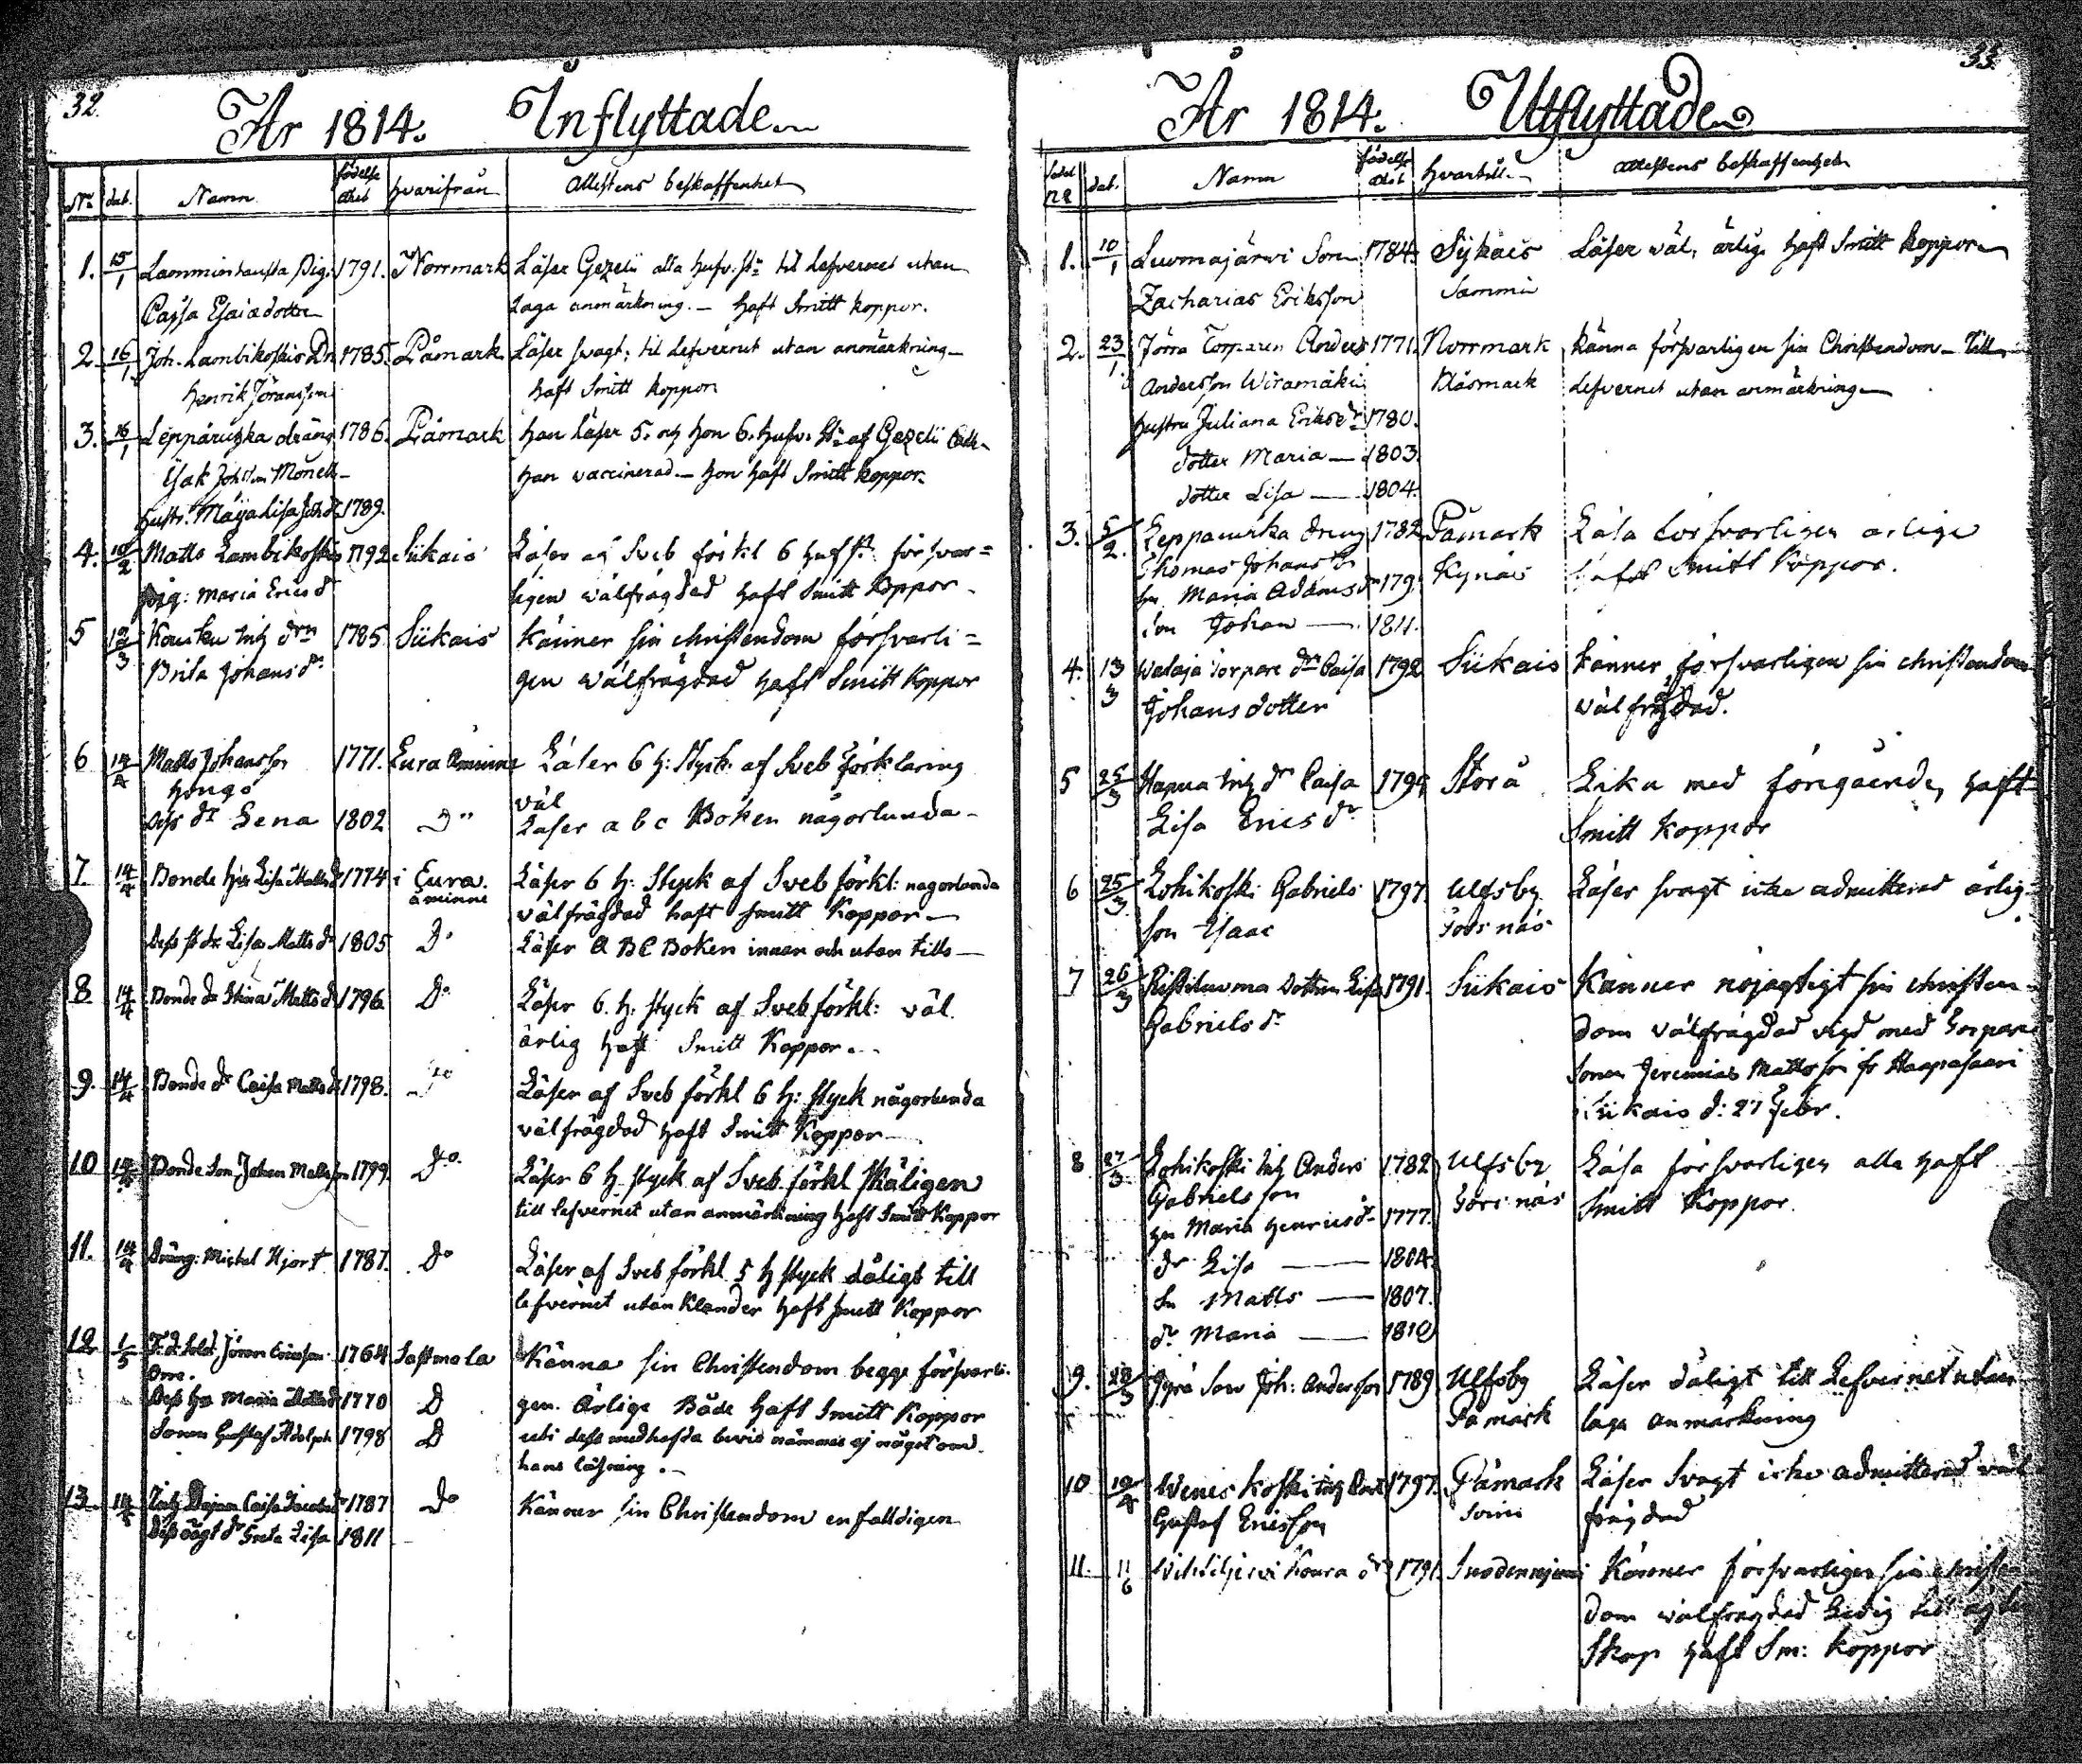 32.
År 1814. Inflyttade
No dat. Namn födelse året hvarifrån Attestens beskaffenhet
1. 15/1 Lamminhausta Pig. 1791. Norrmark Läser Gezelii alla hufv. st. til lefvernet utan
Cajsa Esaiadotter laga anmärkning. – haft Smitt koppor.
2 16/1 Joh. Lambikoskis Dr 1785. Påmark Läser svagt; til lefvernet utan anmärkning
Henrik Jöransson haft Smitt koppor
3. 16/1 Leppäruska dräng 1786. Påmark han Läser 5. och hon 6. hufv. st. af Gezelii
Isak Johsson Monell han vaccinerad – hon haft Smitt koppor
hustr. Maja Lisa Joh.dr 1789.
4. 10/2 Matts Lambikoskis 1792 Siikais Läser af Sveb förkl 6 huf st. försvar=
pig: Maria Erics dr ligen wälfrägdad haft Smitt Koppor
5 12/3 Kausku Inh drn 1785. Siikais känner sin christendom försvarli=
Brita Johans dr gen wälfrägdad haft Smitt Koppor
6 14/4 Matts Johansson 1771. Eura Åminne Läser 6 h: styck af Sveb Förklaring
Hongo väl
Dess dr Lena 1802 Do Läser a b c Boken någorlunda
7 14/4 Bonde hu Lisa Matts d 1774 i Eura Läser 6 h: styck af Sveb förkl: någorlunda
åminne välfrägdad haft smitt Koppor –
Dess st dr Lisa Matts dr 1805 Do Läser A B C Boken innan och utan tills –
8 14/4 Bonde dr Stina Matts d 1796 Do Läser 6. h: styck af Sveb förkl: väl
ärlig haft Smitt Koppor
9. 14/4 Bonde dr Caisa Matts d 1798. Do Läser af Sveb förkl 6 h: styck någorlunda
välfrägdad haft Smitt Koppor
10 14/4 Bonde Son Johan Mattsson 1799. Do Läser 6 h styck af Sveb förkl skäligen
till lefvernet utan anmärkning haft Smitt Koppor
11. 14/4 Dräng: Michel Hjort 1787. Do Läser af Sveb förkl 5 h styck dåligt till
lefvernet utan Klander haft smitt Koppor
12 1/5 Soldt Jöran Ericsson 1764 Sastmola Känna sin Christendom begge försvarli-
Orre.
Dess hu Maria Mattsd 1770 D gen. Ärlige Både haft Smitt Koppor
Sonen Gustaf Adolph 1798 D uti dess medhafda bevis nämnes ej något om
hans läsning. –
13. Inh Caisa Jacobsdr 1787 Do Känner sin Christendom enfalldigen
Dess oägt dr Greta Lisa 1811
33.
År 1814. Utflyttade
No dat. Namn födelse året hvartill Attestens beskaffenhet
1. 10/1 Luomajärvi Son 1784. Sijkais Läser wäl, ärlig haft Smitt koppor
Zacharias Eriksson Sammi
2. 23/1 Torparen Anders 1771. Norrmark känna försvarligen sin Christendom – Till
Andersson Wiramäki Klåsmark lefvernet utan anmärkning
hustru Juliana Eriksdr 1780.
dotter Maria – 1803.
dotter Lisa – 1804.
3. 5/2. Leppäruska dreng 1782 Påmark Läsa försvarligen ärlige
Thomas Johansson Kynäs haft Smitt Koppor.
hu Maria Adams dr 179
son Johan – 1811.
4. 13/3 torpare dr Caisa 1792 Siikais känner försvarligen sin christendom
Johans dotter välfrägdad.
5 25/3 Inh dr Caisa 1794 Storå Lika med föregående, haft
Lisa Erics dr Smitt koppor
6 25/3 Lohikoski Gabriels 1797 Ulfsby Läser svagt icke admitterad ärlig
son Isaac
7 26/3 Ristiluoma dottren Lisa 1791. Siikais Känner nöjagtigt sin christen-
Gabriels dr dom välfrägdad vigd med Torpare
Sonen Jeremias Mattsson fr Haapasaari
Siikais d: 27 Febr.
8 27/3 Lohikoski Inh Anders 1782 Ulfsby Läsa försvarligen alla haft
Gabriels son Smitt Koppor.
hu Maria Henricsdr 1777.
dr Lisa – 1804.
Sn Matts – 1807.
dr Maria – 1810
9. 28/3 Jyrä Son Joh: Andersson 1789 Ulfsby Läser dåligt till Lefvernet utan
Påmark laga anmärkning
10 Weneskoski Inh 1797. Påmark Läser Svagt icke admitterad väl
Gustaf Ericsson frägdad
11. 11/6 1791. Suodenniemi Känner försvarligen sin christen
dom wälfrägdad Ledig till ägte
skap haft Sm: koppor